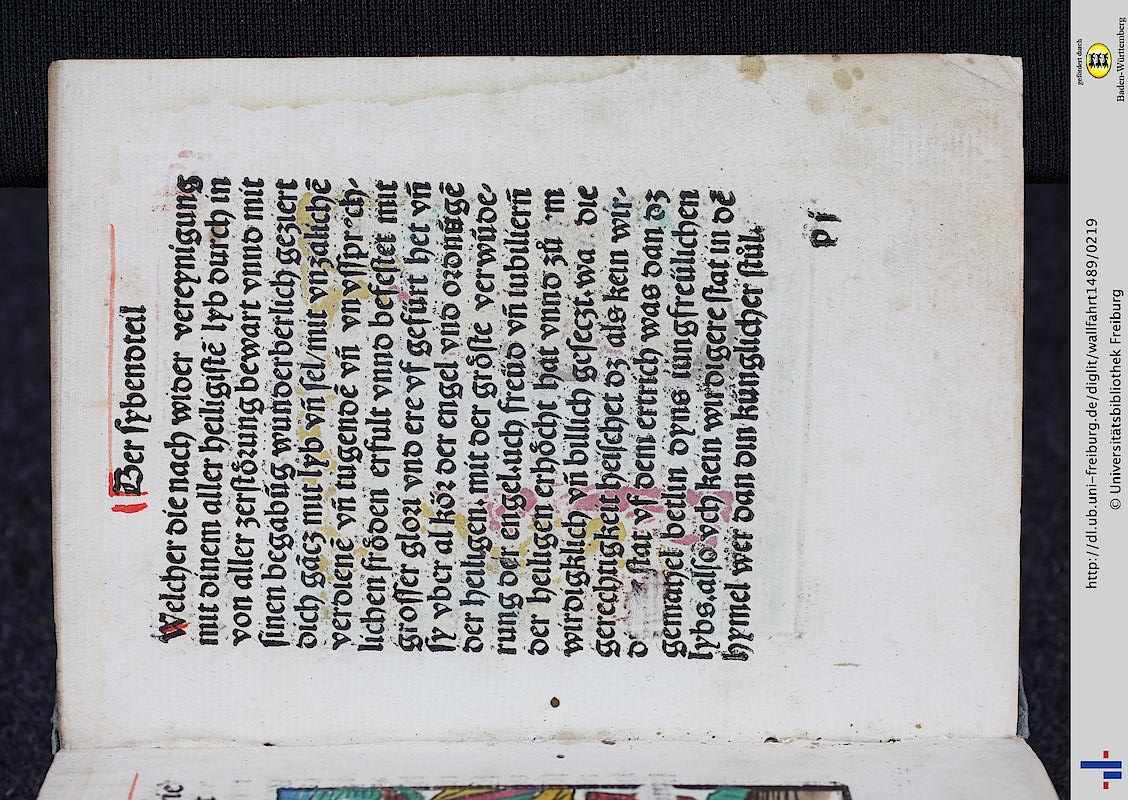 Der sybendteil
Welcher die nach wider vereynigung
mit dinem aller heiligistē lyb durch in
von aller zerstörung bewart vnnd mit
sinen begabūg wunderberlich geziert
dich gācz mit lyb vn̄ sel/mit vnzalichē
verdienē vn̄ tugendē vn̄ vnvssprech-
lichen fröden erfult vnnd befestet mit
grosser glori vnd ere vf gefürt het vn̄
sy vber al kör der engel vnd ordnūgē
der heiligen. mit der gröste verwūde-
rung der engel.uch freud vn̄ iubiliern̄
der heiligen erhöcht hat vnnd zů im
wirdigklich vn̄ billich geseczt.wa die
gerechtigkeit heischet dz als kein wir-
stat vf dem ertrich was dan dz
gemahel bettlin dyns iungfreülichen
lybs.also vch kein wirdigere stat in dē
hymel wer dan din künglicher stůl.
p i
gefördert durch
Baden-Württemberg
http://dl.ub.uni-freiburg.de/diglit/wallfahrt1489/0219
© Universitätsbibliothek Freiburg